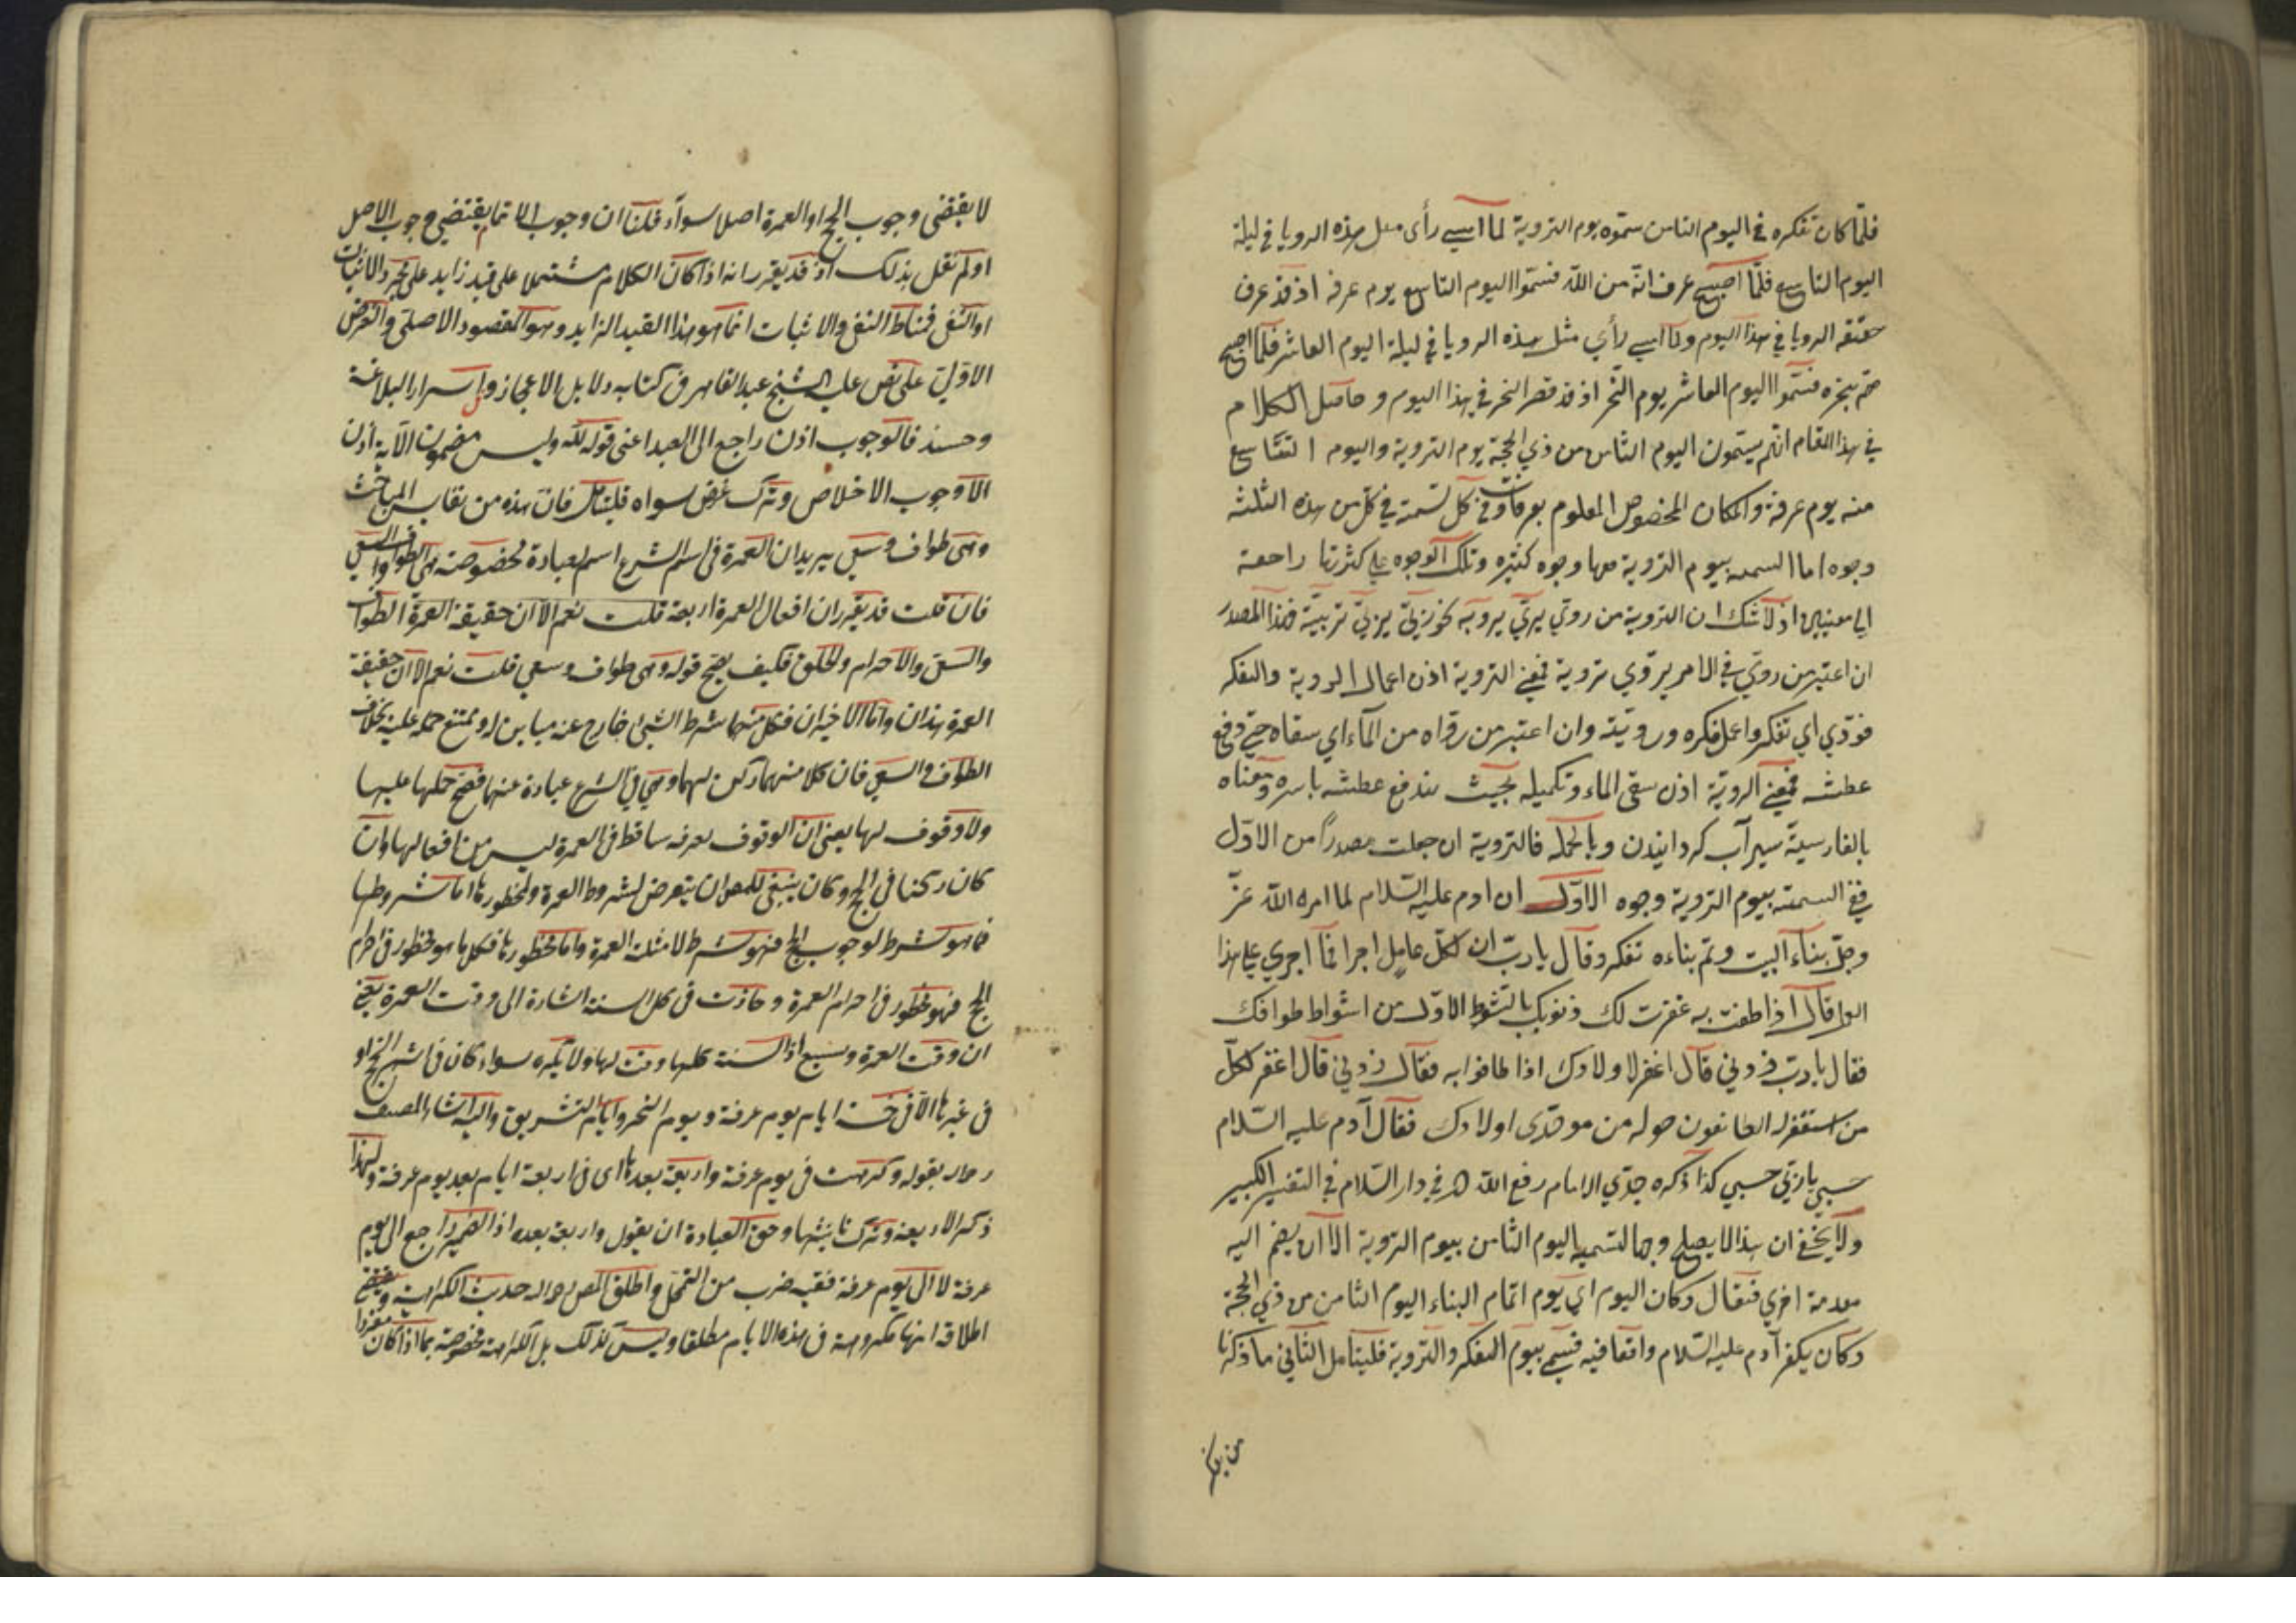 فلمّا كان تفكره في اليوم الثامن سمّوه يوم التروية لما امسي رأى مثل هذه الرويا في ليلة
اليوم التاسع فلمّا اصبح عرف انّه من الله فسمّوا اليوم التاسع يوم عرفه اذ قد عرف
حقيقة الرويا في هذا اليوم ولما امسي رأي مثل هذه الرويا في ليلة اليوم العاشر فلما اصبح
همّ بنحره فسمّوا اليوم العاشر يوم النّحر اذ قد قصر النحر في هذا اليوم وحاصل الكلام
في هذا المقام انّهم يسمّون اليوم الثامن من ذي الحجة يوم التروية واليوم التّاسع
منه يوم عرفة والمكان المخصوص المعلوم بعرفات وفي كل تسمية في كلّ من هذه الثلثه
وجوه اما التسمية بيوم التروية فلها وجوه كثيره وتلك الوجوه علي كثرتها راجعة
الي معنيين اذ لا شك ان التروية من روّي يروّي تروية نحو ربّي يربّي تربيّة فهذا المصدر
ان اعتبر من روّي في الامر يروّي تروية فمعني التروية اذن اعمال الروية والتفكر
فروّي اي تفكر واعمل فكره ورويّته وان اعتبر من روّاه من المآء اي سقاه حتي دفع
عطشه فمعني الرويّة اذن سقي الماء وتكميله بحيث يندفع عطشه باسره ومعناه
بالفارسيّة سيرآب كردانيدن وبالجمله فالتروية ان جعلت مصدراً من الاوّل
ففي التسمية بيوم التروية وجوه الاوّل ان ادم عليه السّلام لما امره الله عزّ
وجلّ بناء البيت وتم بناءه تفكر وقال يا ربّ ان لكلّ عامل اجرا فما اجري علي هذا
العمل قال اذا طفت به غفرت لك ذنوبك بالشوط الاوّل من اشواط طوافك
فقال يا ربّ زدني قال اغفر لاولادك اذا طافوا به فقال زدني قال اغفر لكلّ
من استغفر له الطائفون حوله من موحّدي اولادك فقال آدم عليه السّلام
حسبي يا ربّي حسبي كذا ذكره جدّي الامام رفع الله في دار السّلام في التفسير الكبير
ولا يخفي ان هذا لا يصلح وجها لتسمية اليوم الثامن بيوم التروية الا ان يضم اليه
مقدمة اخري فنقال وكان اليوم اي يوم اتمام البناء اليوم الثامن من ذي الحجة
وكان يكفر آدم عليه السّلام واقعا فيه فسمي بيوم التفكر والتروية فليتامل الثاني ما ذكرنا
لا يقتضى وجوب الحج او العمرة اصلا سوآء قلنا ان وجوب الاتمام يقتضي وجوب الاصل
او لم نقل بذلك اذ قد يقرر انه اذا كان الكلام مشتملا على قيد زايد على مجرد الاثبات
او النفى فمناط النفى والاثبات انما هو هذا القيد الزايد وهو المقصود الاصلى والغرض
الاولي على نص عليه الشيخ عبد القاهر فى كتابه دلايل الاعجاز واسرار البلاغة
وحينئذ فالوجوب اذن راجع الى العبد اعنى قوله لله وليس مضمون الآية اذن
الا وجوب الاخلاص وترك غرض سواه فليتامل فان هذه من نقايس المباحث
وهى طواف وسعي يريد ان العمرة فى اسم الشرع اسم لعبادة مخصوصة هى الطواف والسعي
فان قلت قد يقرر ان افعال العمرة اربعة قلت نعم الا ان حقيقة العمرة الطواف
والسعى والاحرام والحلق فكيف يصح قوله وهى طواف وسعي قلت نعم الا ان حقيقة
العمرة هذان واما الاخيران فكل منهما شرط الشئ خارج عنه مباين له ويمتنع حمله عليه بخلاف
الطواف والسعي فان كلا منهما ركن لهما وهي في الشرع عبادة عنهما فصح حملها عليها
ولا وقوف لها يعنى ان الوقوف بعرفه ساقط فى العمرة ليس من افعالها وان
كان ركنا فى الحج وكان ينبغي للمص ان يتعرض لشروط العمرة ولمحظورها اما شروطها
فما هو شرط لوجوب الحج فهو شرط لامثلة العمرة واما محظورها فكل ما هو محظور فى احرام
الحج فهو محظور فى احرام العمرة وجازت فى كل السنة اشارة الى وقت العمرة يعني
ان وقت العمرة وسيع اذ السنة كلها وقت لها ولا يكره سواء كان فى اشهر الحج او
فى غيرها الا فى خمسة ايام يوم عرفة ويوم النحر وايام التشريق واليه اشار المصنف
رحمه بقوله وكرهت فى يوم عرفة واربعة بعدها اى فى اربعة ايام بعد يوم عرفة ولهذا
ذكر الاربعة وترك تانيثها وحق العبادة ان يقول واربعة بعده اذ الضمير راجع الى يوم
عرفة لا الى يوم عرفة ففيه ضرب من التمحل واطلق المص رحمه الله حديث الكراهة ويقتضي
اطلاقه انها مكروهة فى هذه الايام مطلقا وليس كذلك بل الكراهة مخصوصة بما اذا كان مفردا